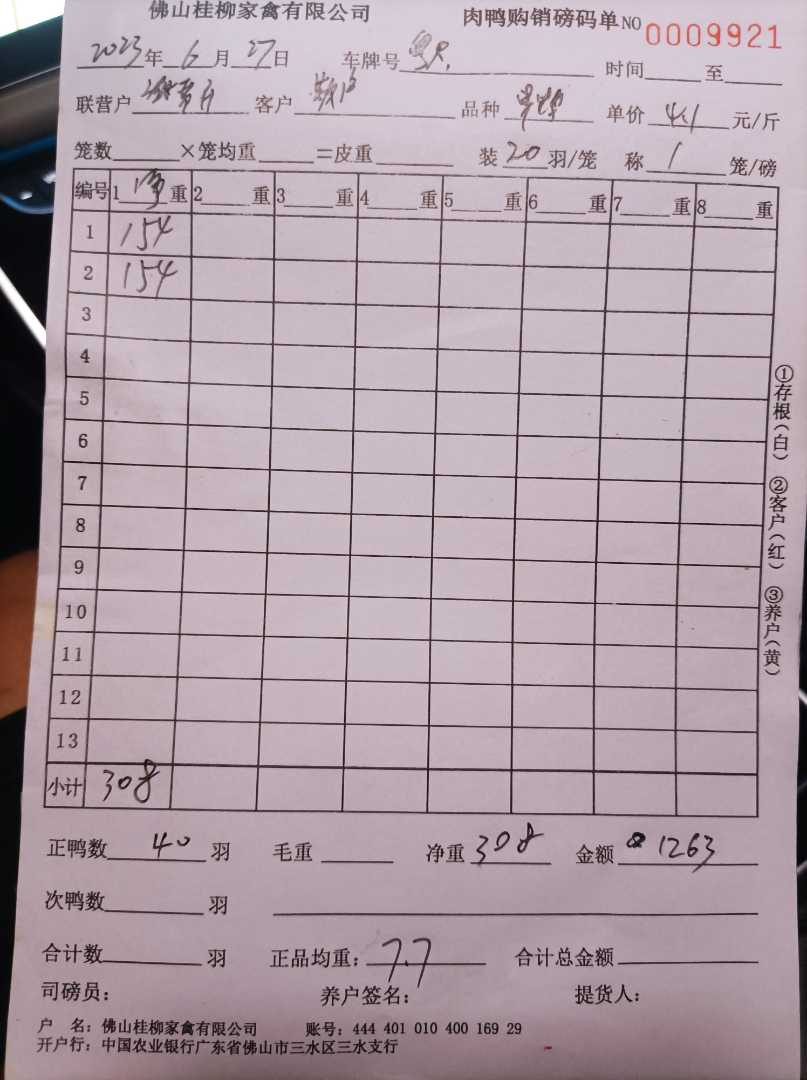 佛山桂柳家禽有限公司 肉鸭购销磅码单 NO 0009921
2023年 6 月 27 日 车牌号 时间 至
联营户 客户 散户 品种 单价 4.1 元/斤
笼数 ×笼均重 =皮重 装 20 羽/笼 称 1 笼/磅
编号 1 净 重 2 重 3 重 4 重 5 重 6 重 7 重 8 重
1 154
2 154
3
4
5
6
7
8
9
10
11
12
13
小计 308
①存根(白) ②客户(红) ③养户(黄)
正鸭数 40 羽 毛重 净重 308 金额 1263
次鸭数 羽
合计数 羽 正品均重: 7.7 合计总金额
司磅员: 养户签名: 提货人:
户 名: 佛山桂柳家禽有限公司 账号: 444 401 010 400 169 29
开户行: 中国农业银行广东省佛山市三水区三水支行